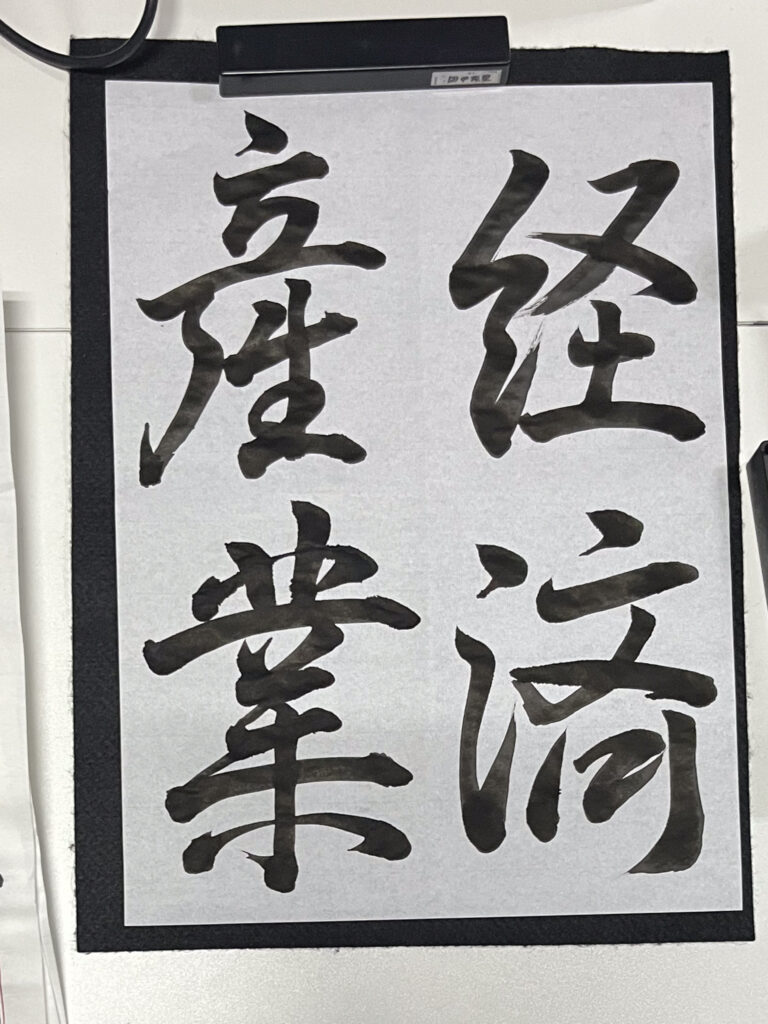 経済
産業